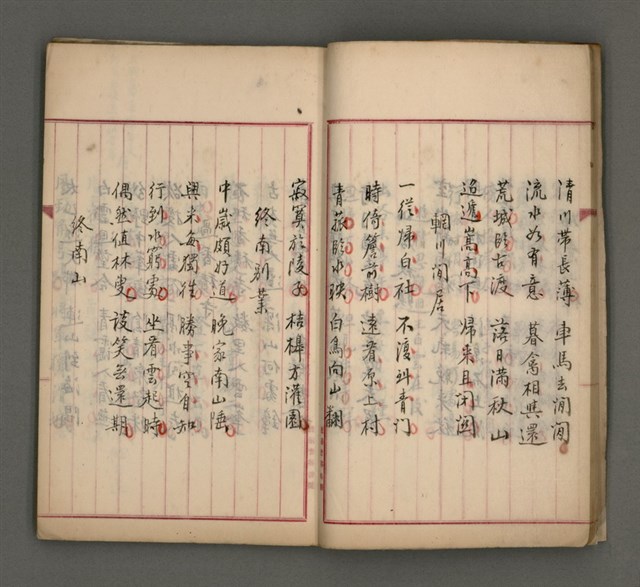 清川帶長薄 車馬去閒閒
流水如有意 暮禽相與還
荒城臨古渡 落日滿秋山
迢遞嵩高下 歸來且閉關
輞川閒居
一從歸白社 不復到青门
時倚簷前樹 遠看原上村
青菰臨水映 白鳥向山翻
寂寞於陵子 桔槔方灌園
終南別業
中歲頗好道 晚家南山陲
興来每獨往 勝事空自知
行到水窮處 坐看雲起時
偶然值林叟 談笑無還期
終南山